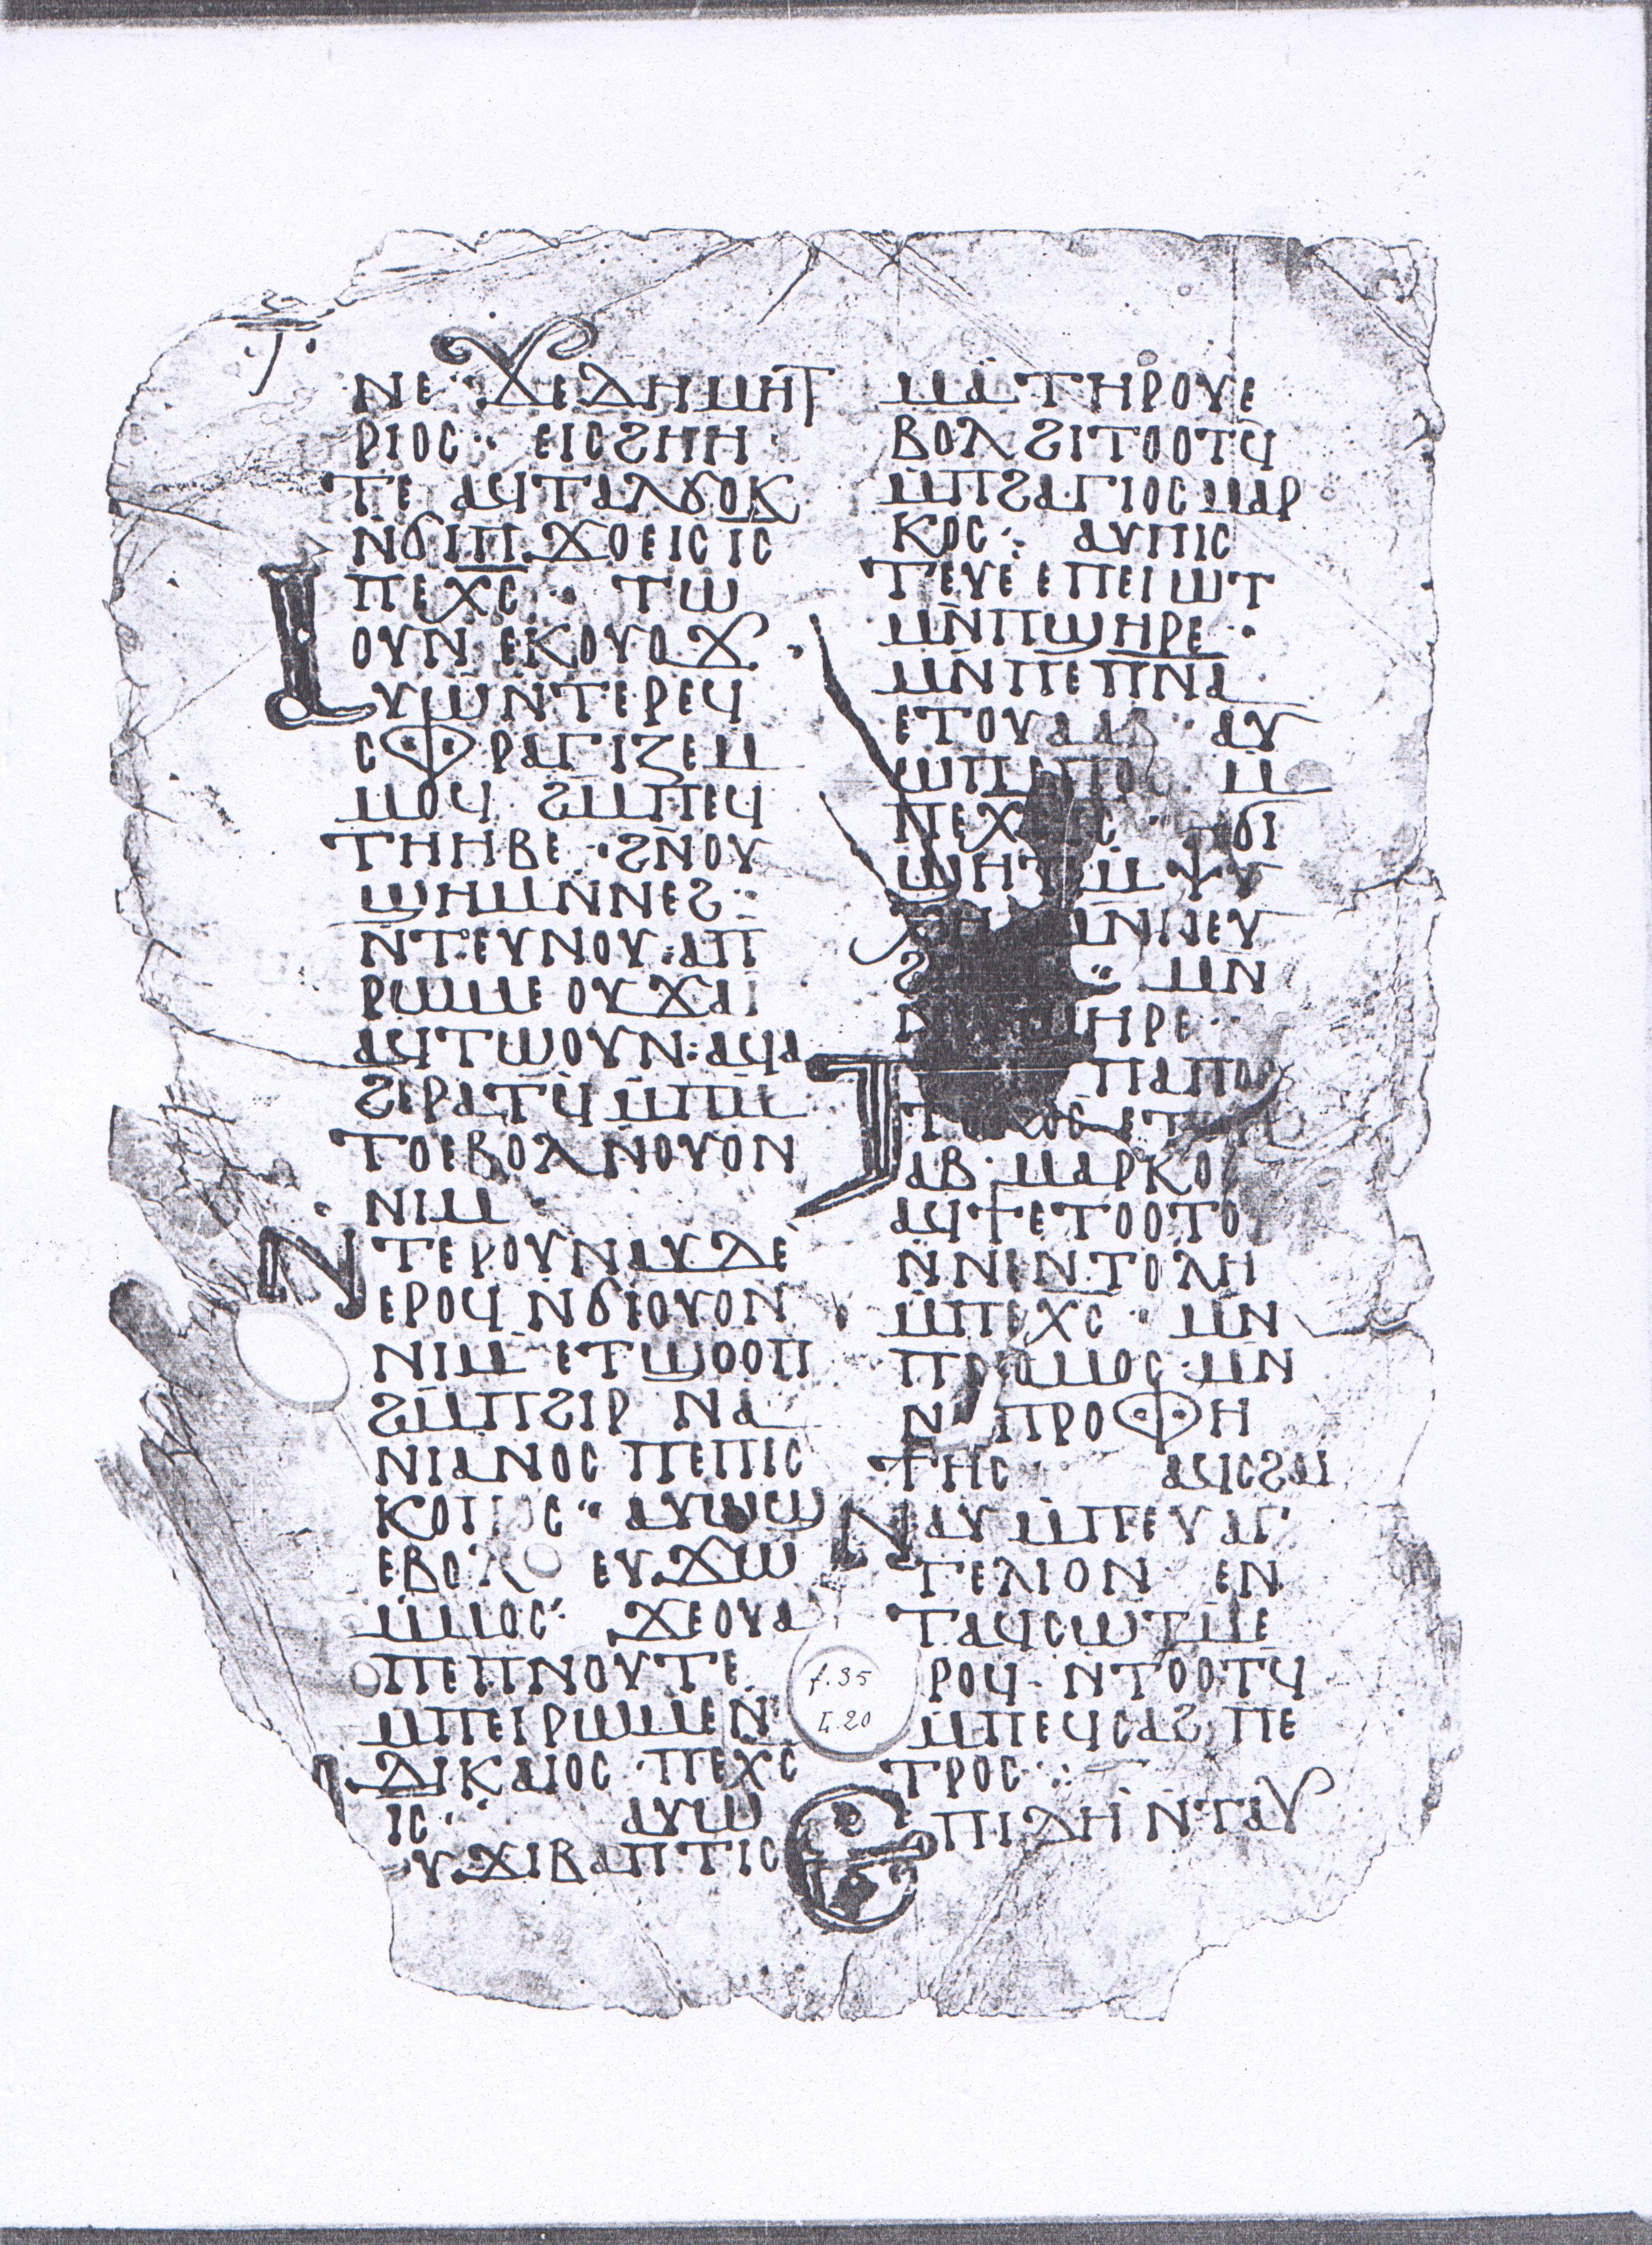 ⲅ̅
ⲛⲉ· ϫⲉⲇⲏⲙⲏⲧ
ⲣⲓⲟⲥ·· ⲉⲓⲥϩⲏⲏ
ⲧⲉ ⲁϥⲧⲁⲗϭⲟⲕ
ⲛϭⲓⲡϫⲟⲉⲓⲥ ⲓⲥ
ⲡⲉⲭⲥ·· ⲧⲱ
ⲟⲩⲛ ⲉⲕⲟⲩⲟϫ·
ⲁⲩⲱ ⲛⲧⲉⲣⲉϥ
ⲥⲫⲣⲁⲅⲓⲍⲉⲙ
ⲙⲟϥ ϩⲙⲡⲉϥ
ⲧⲏⲏⲃⲉ· ϩⲛⲟⲩ
ϣⲏⲙⲛⲛⲉϩ:
ⲛⲧⲉⲩⲛⲟⲩ: ⲁⲡ
ⲣⲱⲙⲉ ⲟⲩϫⲁⲓ
ⲁϥⲧⲱⲟⲩⲛ: ⲁϥⲁ
ϩⲉⲣⲁⲧϥ ⲙⲡⲙ
ⲧⲟⲉⲃⲟⲗ ⲛⲟⲩⲟⲛ
ⲛⲓⲙ·
ⲛⲧⲉⲣⲟⲩⲛⲁⲩ ⲇⲉ
ⲉⲣⲟϥ ⲛϭⲓⲟⲩⲟⲛ
ⲛⲓⲙ ⲉⲧϣⲟⲟⲡ
ϩⲙⲡϩⲓⲣ ⲛⲁ
ⲛⲓⲁⲛⲟⲥ ⲡⲉⲡⲓⲥ
ⲕⲟⲡⲟⲥ·· ⲁⲩⲱϣ
ⲉⲃⲟⲗ ⲉⲩϫⲱ
ⲙⲙⲟⲥ· ϫⲉⲟⲩⲁ
ⲡⲉⲡⲛⲟⲩⲧⲉ
ⲙⲡⲉⲓⲣⲱⲙⲉⲛ
ⲇⲓⲕⲁⲓⲟⲥ· ⲡⲉⲭⲥ
ⲓⲥ· ⲁⲩⲱ
ⲁⲩϫⲓⲃⲁⲡⲧⲓⲥ
ⲙⲁ ⲧⲏⲣⲟⲩⲉ
ⲃⲟⲗ ϩⲓⲧⲟⲟⲧϥ
ⲙⲡϩⲁⲅⲓⲟⲥ ⲙⲁⲣ
ⲕⲟⲥ: ⲁⲩⲡⲓⲥ
ⲧⲉⲩⲉ ⲉⲡⲉⲓⲱⲧ
ⲙⲛⲡϣⲏⲣⲉ·
ⲙⲛⲡⲉⲡⲛⲁ
ⲉⲧⲟⲩⲁⲁⲃ· ⲁⲩ
ϣⲏⲧ ⲙⲯⲩ
ⲙⲛ
ϣⲏⲣⲉ··
ⲡⲁⲡⲟ
ⲁⲃ· ⲙⲁⲣⲕⲟ
ⲁϥϯ ⲉⲧⲟⲟⲧⲟ
ⲛⲛⲉⲛⲧⲟⲗⲏ
ⲙⲡⲉⲭⲥ· ⲙⲛ
ⲡⲛⲟⲙⲟⲥ· ⲙⲛ
ⲛⲉⲡⲣⲟⲫⲏ
ⲧⲏⲥ· ⲁϥⲥϩⲁⲓ
ⲛⲁⲩ ⲙⲡⲉⲩⲁⲅ
ⲅⲉⲗⲓⲟⲛ ⲉⲛ
ⲧⲁϥⲥⲱⲧⲙⲉ
ⲣⲟϥ· ⲛⲧⲟⲟⲧϥ
ⲙⲡⲉϥⲥⲁϩ ⲡⲉ
ⲧⲣⲟⲥ··
ⲉⲡⲓⲇⲏ ⲛⲧⲁⲩ
f. 35
I. 20